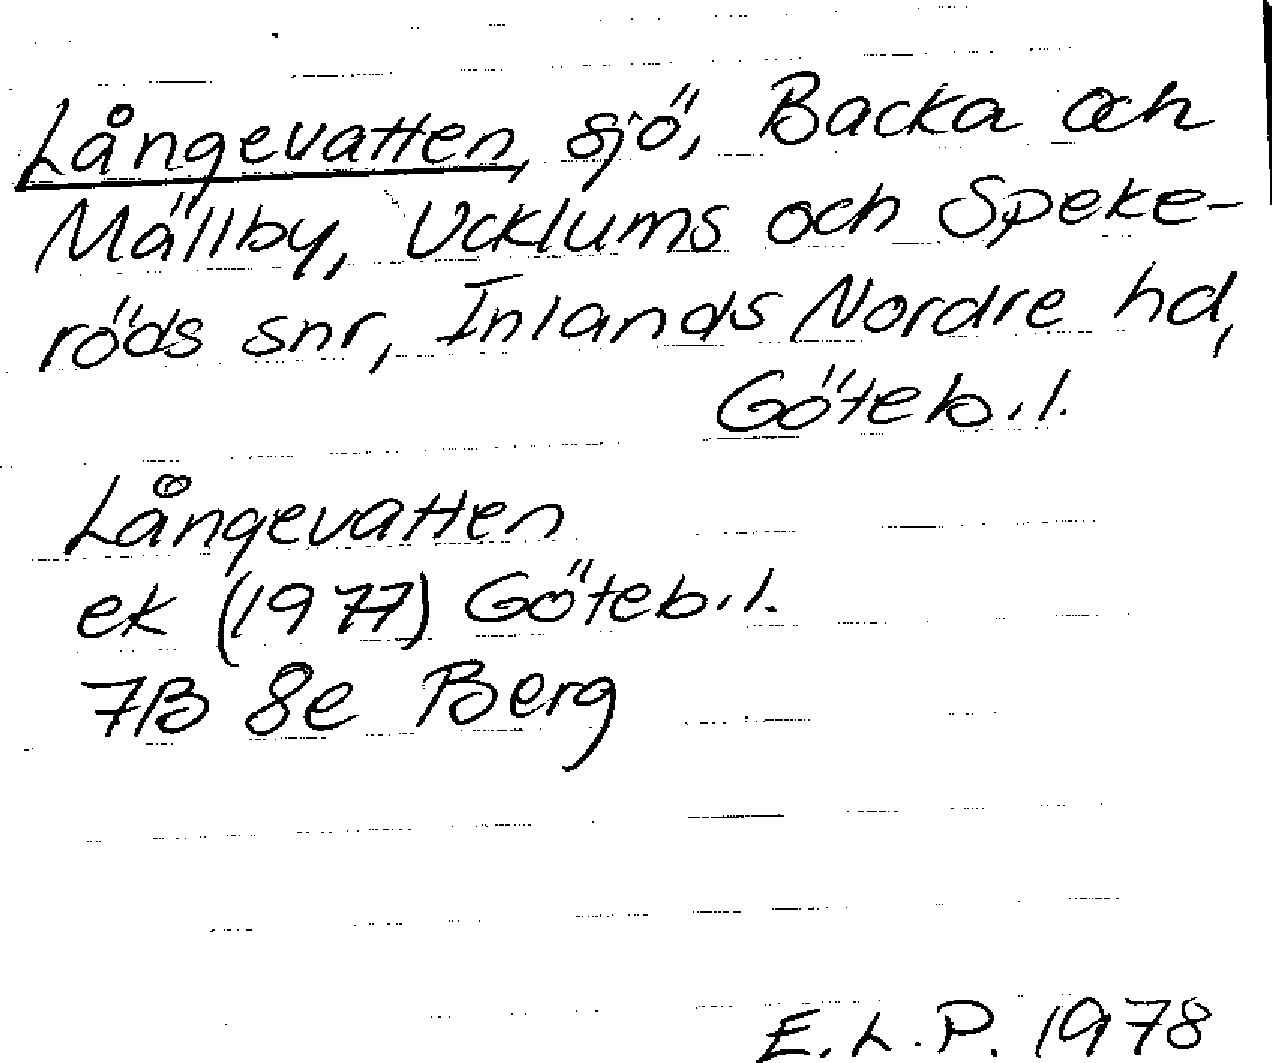 Långevatten, sjö, Backa och
Mällby, Ucklums och Speke-
röds snr, Inlands Nordre hd,
Göteb.l.
Långevatten
ek (1977) Göteb.l.
7B 8e Berg
E.L.P. 1978